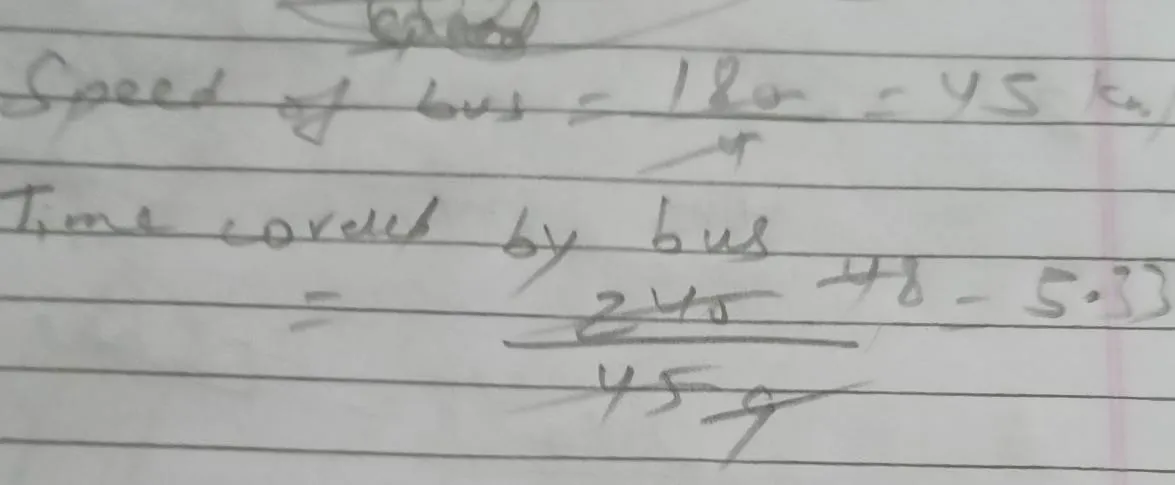 Speed of bus = 180 = 45 km
4
Time covered by bus
= 240 48 = 5.33
45 9